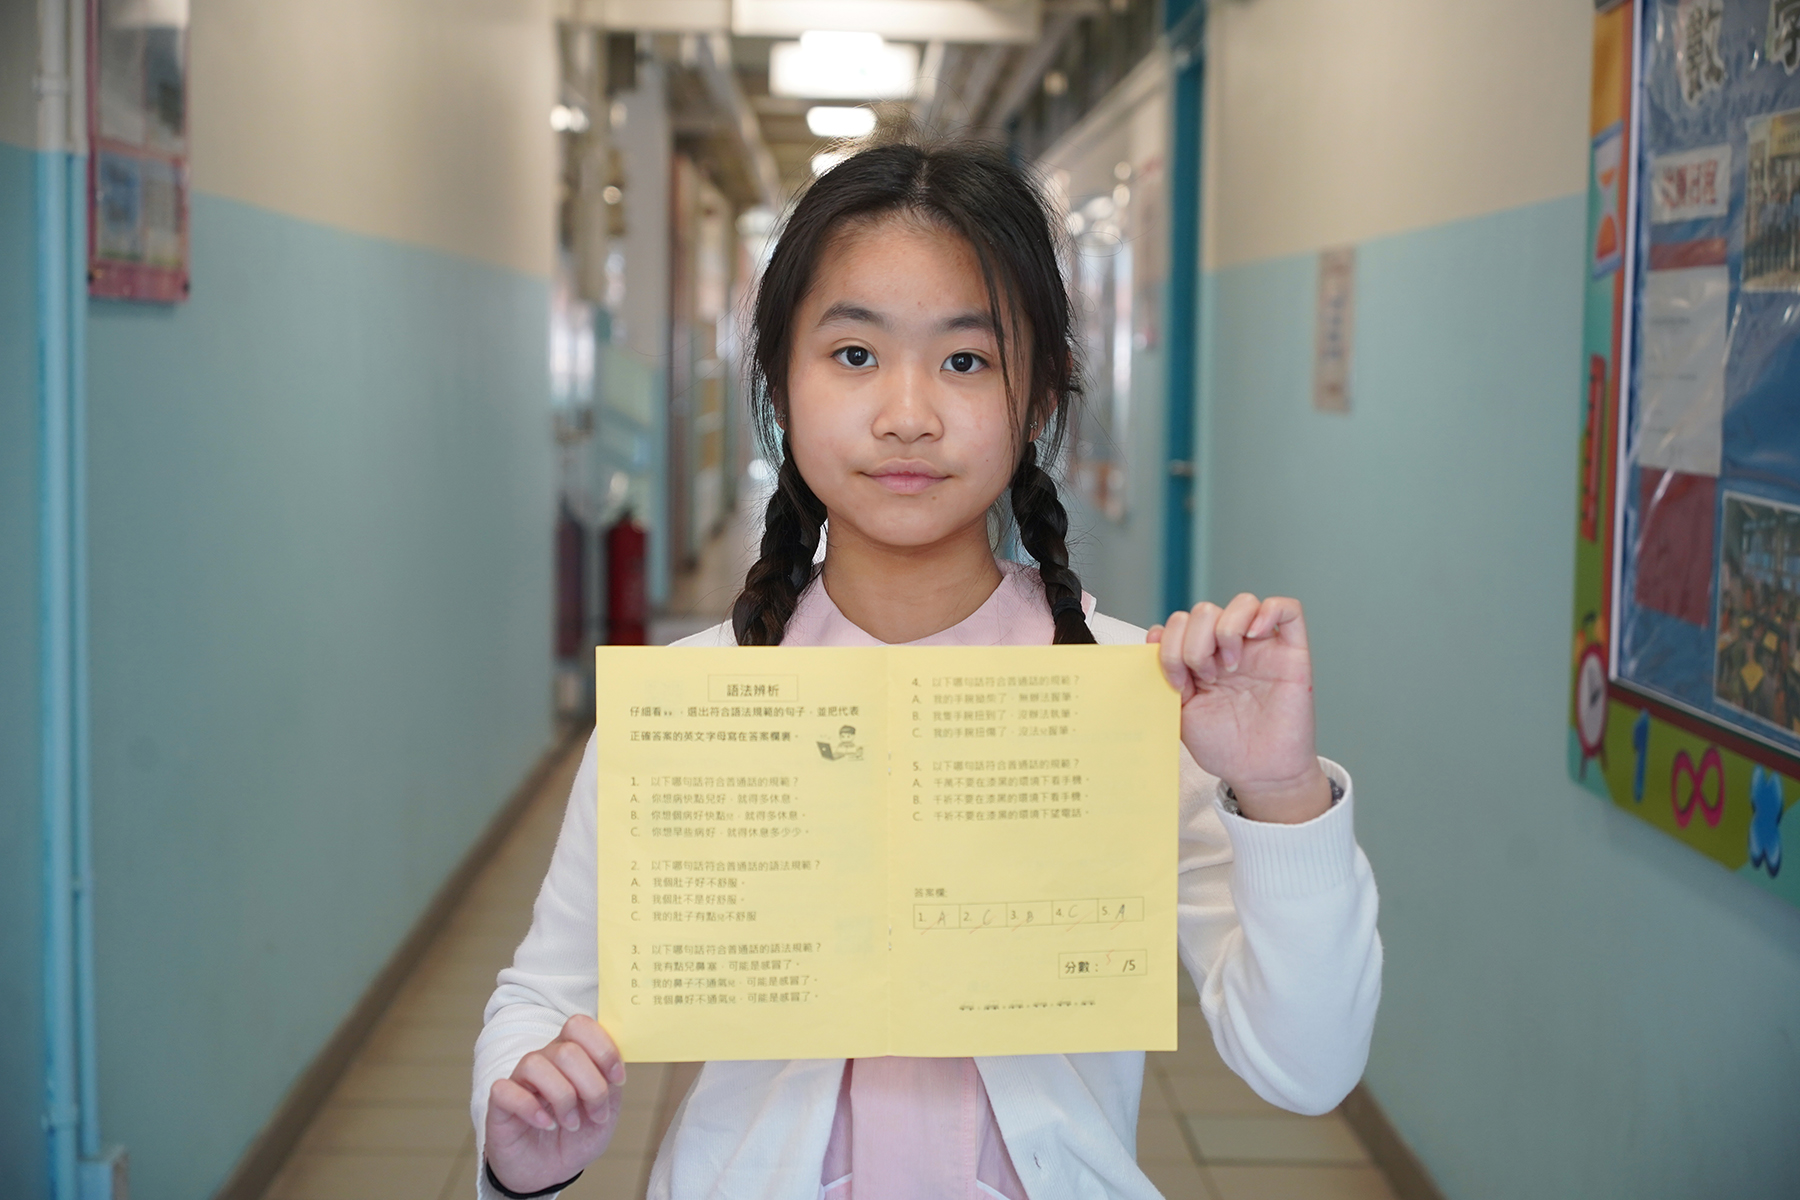 語法辨析
仔細看，選出符合語法規範的句子，並把代表
正確答案的英文字母寫在答案欄裏。
1. 以下哪句話符合普通話的規範？
A. 你想病快點兒好，就得多休息。
B. 你想個病好快點兒，就得多休息。
C. 你想早些病好，就得休息多少少。
2. 以下哪句話符合普通話的語法規範？
A. 我個肚子好不舒服。
B. 我個肚不是好舒服。
C. 我的肚子有點兒不舒服
3. 以下哪句話符合普通話的語法規範？
A. 我有點兒鼻塞，可能是感冒了。
B. 我的鼻子不通氣兒，可能是感冒了。
C. 我個鼻好不通氣兒，可能是感冒了。
4. 以下哪句話符合普通話的規範？
A. 我的手腕拗柴了，無辦法握筆。
B. 我隻手腕扭到了，沒辦法執筆。
C. 我的手腕扭傷了，沒法兒握筆。
5. 以下哪句話符合普通話的規範？
A. 千萬不要在漆黑的環境下看手機。
B. 千祈不要在漆黑的環境下看手機。
C. 千祈不要在漆黑的環境下望電話。
答案欄:
1. A 2. C 3. B 4. C 5. A
分數： 5 /5
數